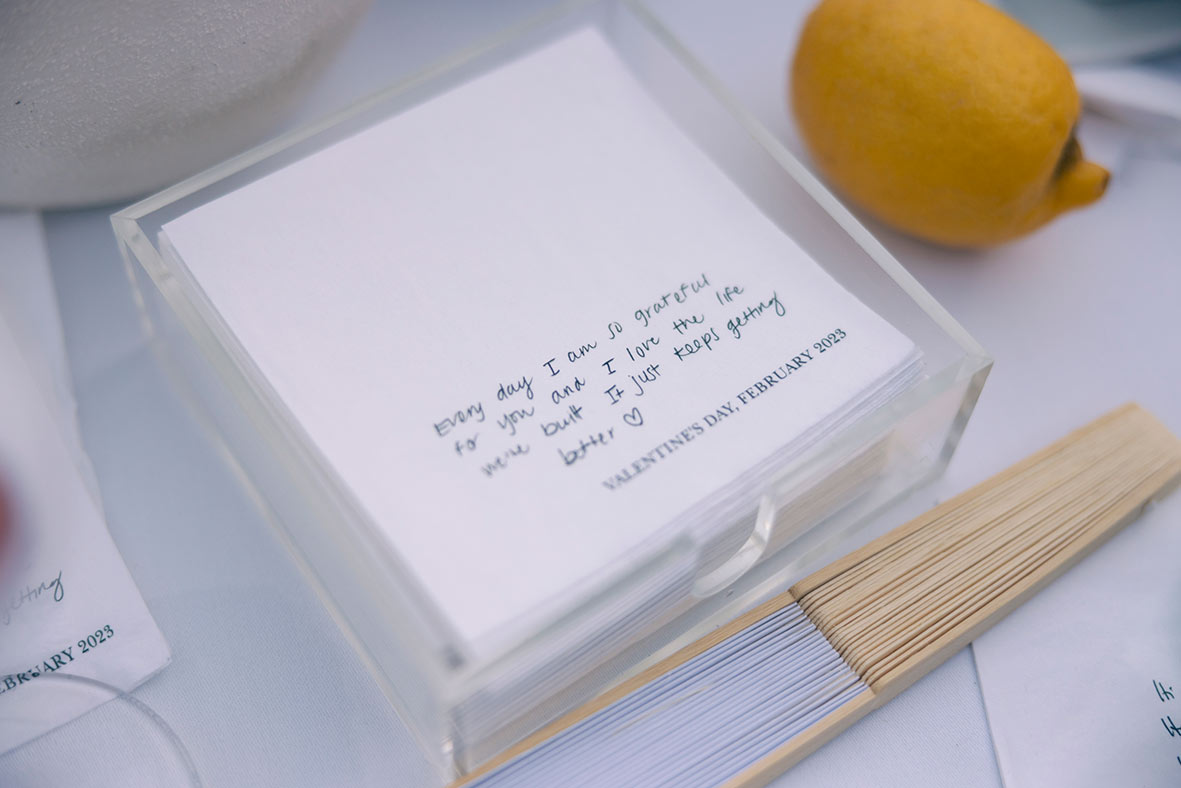 Every day I am so grateful
for you and I love the life
we've built It just keeps getting
better ♡
VALENTINE'S DAY, FEBRUARY 2023
getting
FEBRUARY 2023